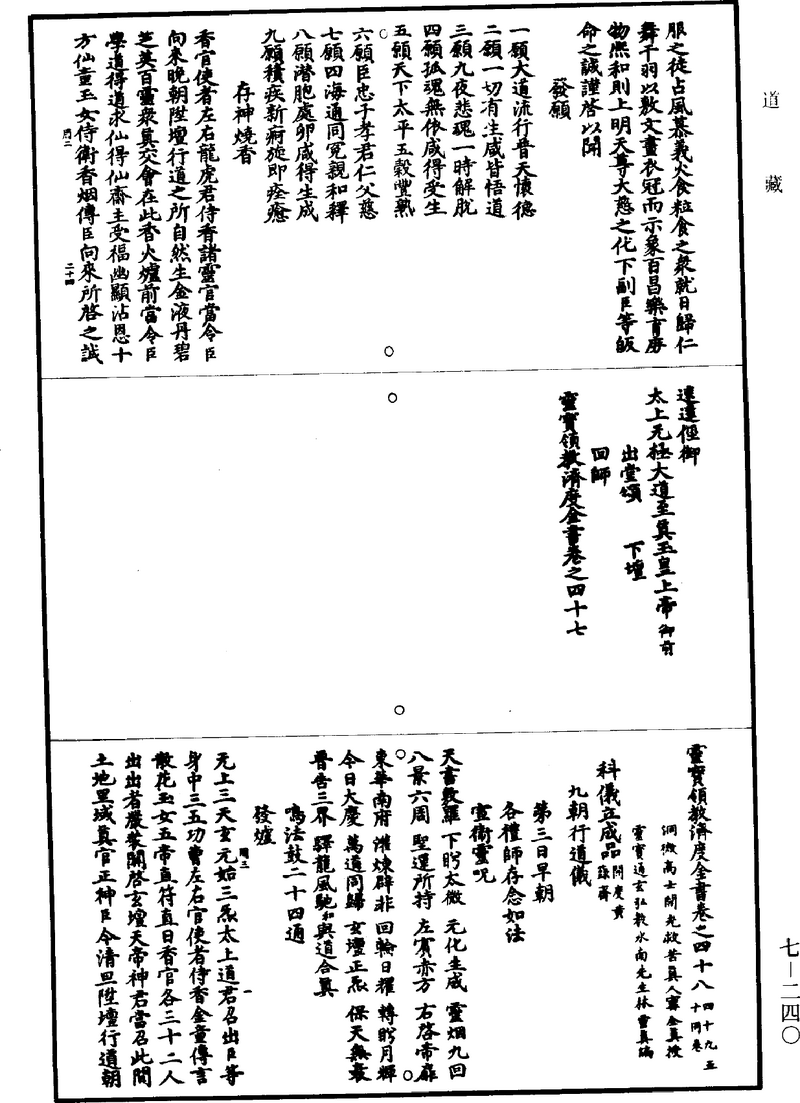 道藏
七—二四〇
服之徒占風慕義火食粒食之衆就日歸仁
舞干羽以敷文畫衣冠而示象百昌樂育庶
物熙和則上明天尊大慈之化下副臣等皈
命之誠謹啓以聞
發願
一願大道流行普天懷德
二願一切有生咸皆悟道
三願九夜悲魂一時解脫
四願孤魂無依咸得受生
五願天下太平五穀豐熟
六願臣忠子孝君仁父慈
七願四海通同冤親和釋
八願潛胞處卵咸得生成
九願積疾新痾旋即痊癒
存神燒香
香官使者左右龍虎君侍香諸靈官當令臣
向來晚朝陞壇行道之所自然生金液丹碧
芝英百靈衆真交會在此香火爐前當令臣
學道得道求仙得仙齋主受福幽顯沾恩十
方仙童玉女侍衛香烟傳臣向來所啓之誠
二十四
速達徑御
太上无極大道至真玉皇上帝御前
出堂頌　下壇
回師
靈寶領教濟度金書卷之四十七
靈寶領教濟度金書卷之四十八　四十九五十同卷
洞微高士開光救苦真人甯全真授
靈寶通玄弘教水南先生林靈真編
科儀立成品　開度黃籙齋
九朝行道儀
第三日早朝
各禮師存念如法
宣衛靈呪
天書敷羅　下眄太微　元化生成　靈烟九回
八景六周　聖還所持　左賓赤方　右啓帝扉
東華南府　灌煉辟非　回輪日耀　轉眄月輝
今日大慶　萬道同歸　玄壇正炁　保天無衰
普告三界　驛龍風馳　和與道合真
鳴法鼓二十四通
發爐
无上三天玄元始三炁太上道君召出臣等
身中三五功曹左右官使者侍香金童傳言
散花玉女五帝直符直日香官各三十二人
出出者嚴裝關啓玄壇天帝神君當召此間
土地里域真官正神臣今清旦陞壇行道朝